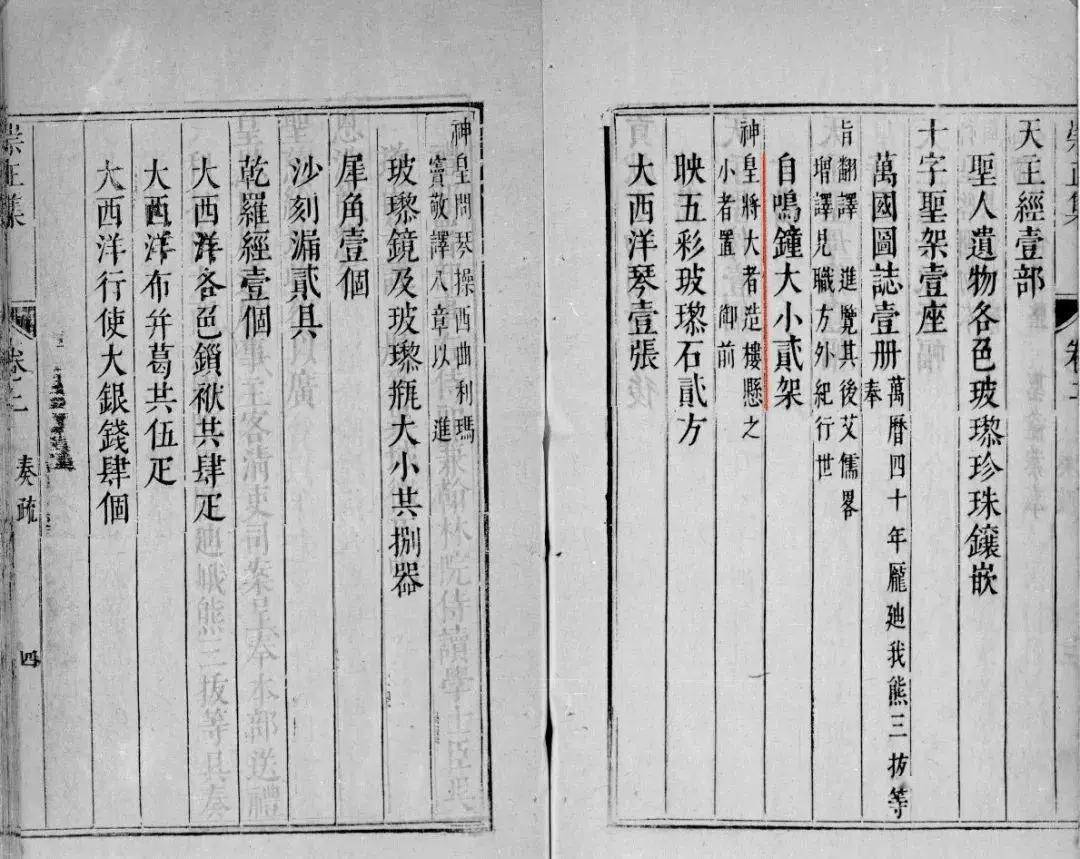 天主經壹部
聖人遺物各色玻瓈珍珠鑲嵌
十字聖架壹座
萬國圖誌壹册 萬曆四十年龐廸我熊三拔等奉
旨翻譯 進覽其後艾儒畧增譯見職方外紀行世
自鳴鐘大小貳架
神皇將大者造樓懸之小者置 御前
映五彩玻瓈石貳方
大西洋琴壹張
神皇問琴操西曲利瑪竇敬譯八章以 進
玻瓈鏡及玻瓈瓶大小共捌器
犀角壹個
沙刻漏貳具
乾羅經壹個
大西洋各色鎖袱共肆疋
大西洋布并葛共伍疋
大西洋行使大銀錢肆個
奏疏
四